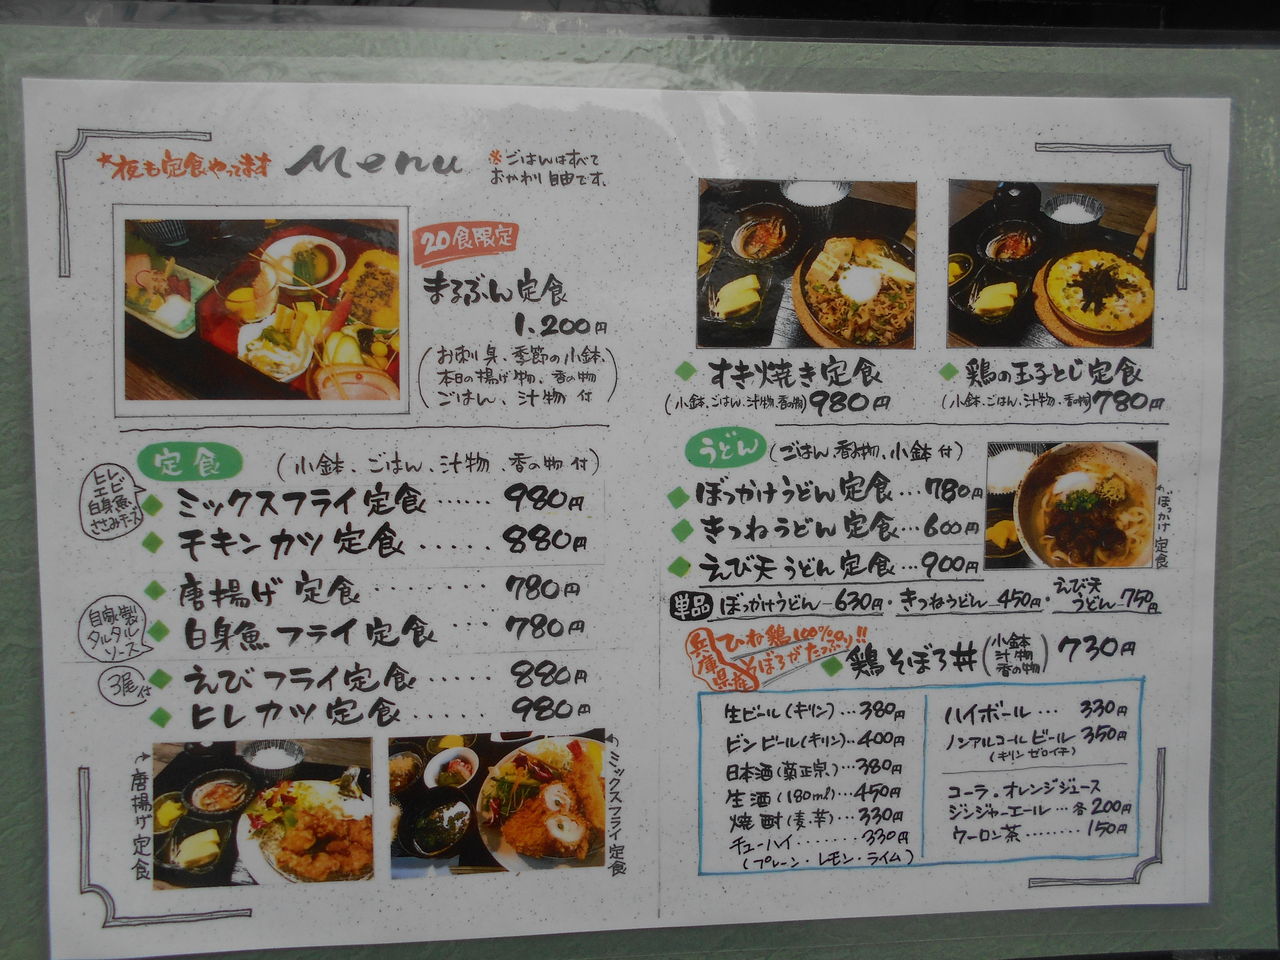 ★夜も定食やってます
Menu
※ごはんはすべて
おかわり自由です。
20食限定
まるぶん定食
1.200円
(お刺身、季節の小鉢、
本日の揚げ物、香の物
ごはん、汁物 付)
定食
(小鉢、ごはん、汁物、香の物 付)
ヒレ
エビ
白身魚
ささみチーズ
◆ミックスフライ定食... 980円
◆チキンカツ定食..... 880円
◆唐揚げ定食....... 780円
自家製
タルタル
ソース
◆白身魚フライ定食... 780円
3尾付
◆えびフライ定食.... 880円
◆ヒレカツ定食..... 980円
唐揚げ定食
ミックスフライ定食
◆すき焼き定食
(小鉢、ごはん、汁物、香の物) 980円
◆鶏の玉子とじ定食
(小鉢、ごはん、汁物、香の物) 780円
うどん
(ごはん、香の物、小鉢 付)
◆ぼっかけうどん定食... 780円
◆きつねうどん定食... 600円
◆えび天うどん定食... 900円
ぼっかけ定食
単品 ぼっかけうどん 630円・きつねうどん 450円・えび天うどん 750円
兵庫県産
ひね鶏100%の
そぼろがたっぷり!!
◆鶏そぼろ丼(小鉢 汁物 香の物) 730円
生ビール(キリン)...380円
ビンビール(キリン)..400円
日本酒(菊正宗)...380円
生酒(180ml)...450円
焼酎(麦・芋)...330円
チューハイ.......330円
(プレーン・レモン・ライム)
ハイボール... 330円
ノンアルコールビール 350円
(キリンゼロイチ)
コーラ・オレンジジュース
ジンジャーエール...各200円
ウーロン茶........150円